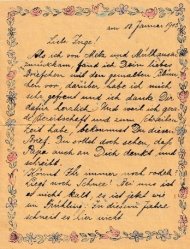 am 18 Januar
Liebe Inge!
Als ich von Metz und Mülhausen
zurückkam, fand ich Dein liebes
Briefchen mit den gemalten Blüm-
chen vor, darüber habe ich mich
sehr gefreut und ich danke Dir
dafür herzlich. Und weil ich ge-
rade Bereitschaft und zum Schreiben
Zeit habe, bekommst Du diesen
Brief. Du sollst doch sehen, daß
Papa auch an Dich denkt und
schreibt.
Könnt Ihr immer noch rodeln?
Liegt noch Schnee? Bei uns ist
es nicht kalt es ist jetzt wie
im Frühling. In diesem Jahre
schneit es hier nicht